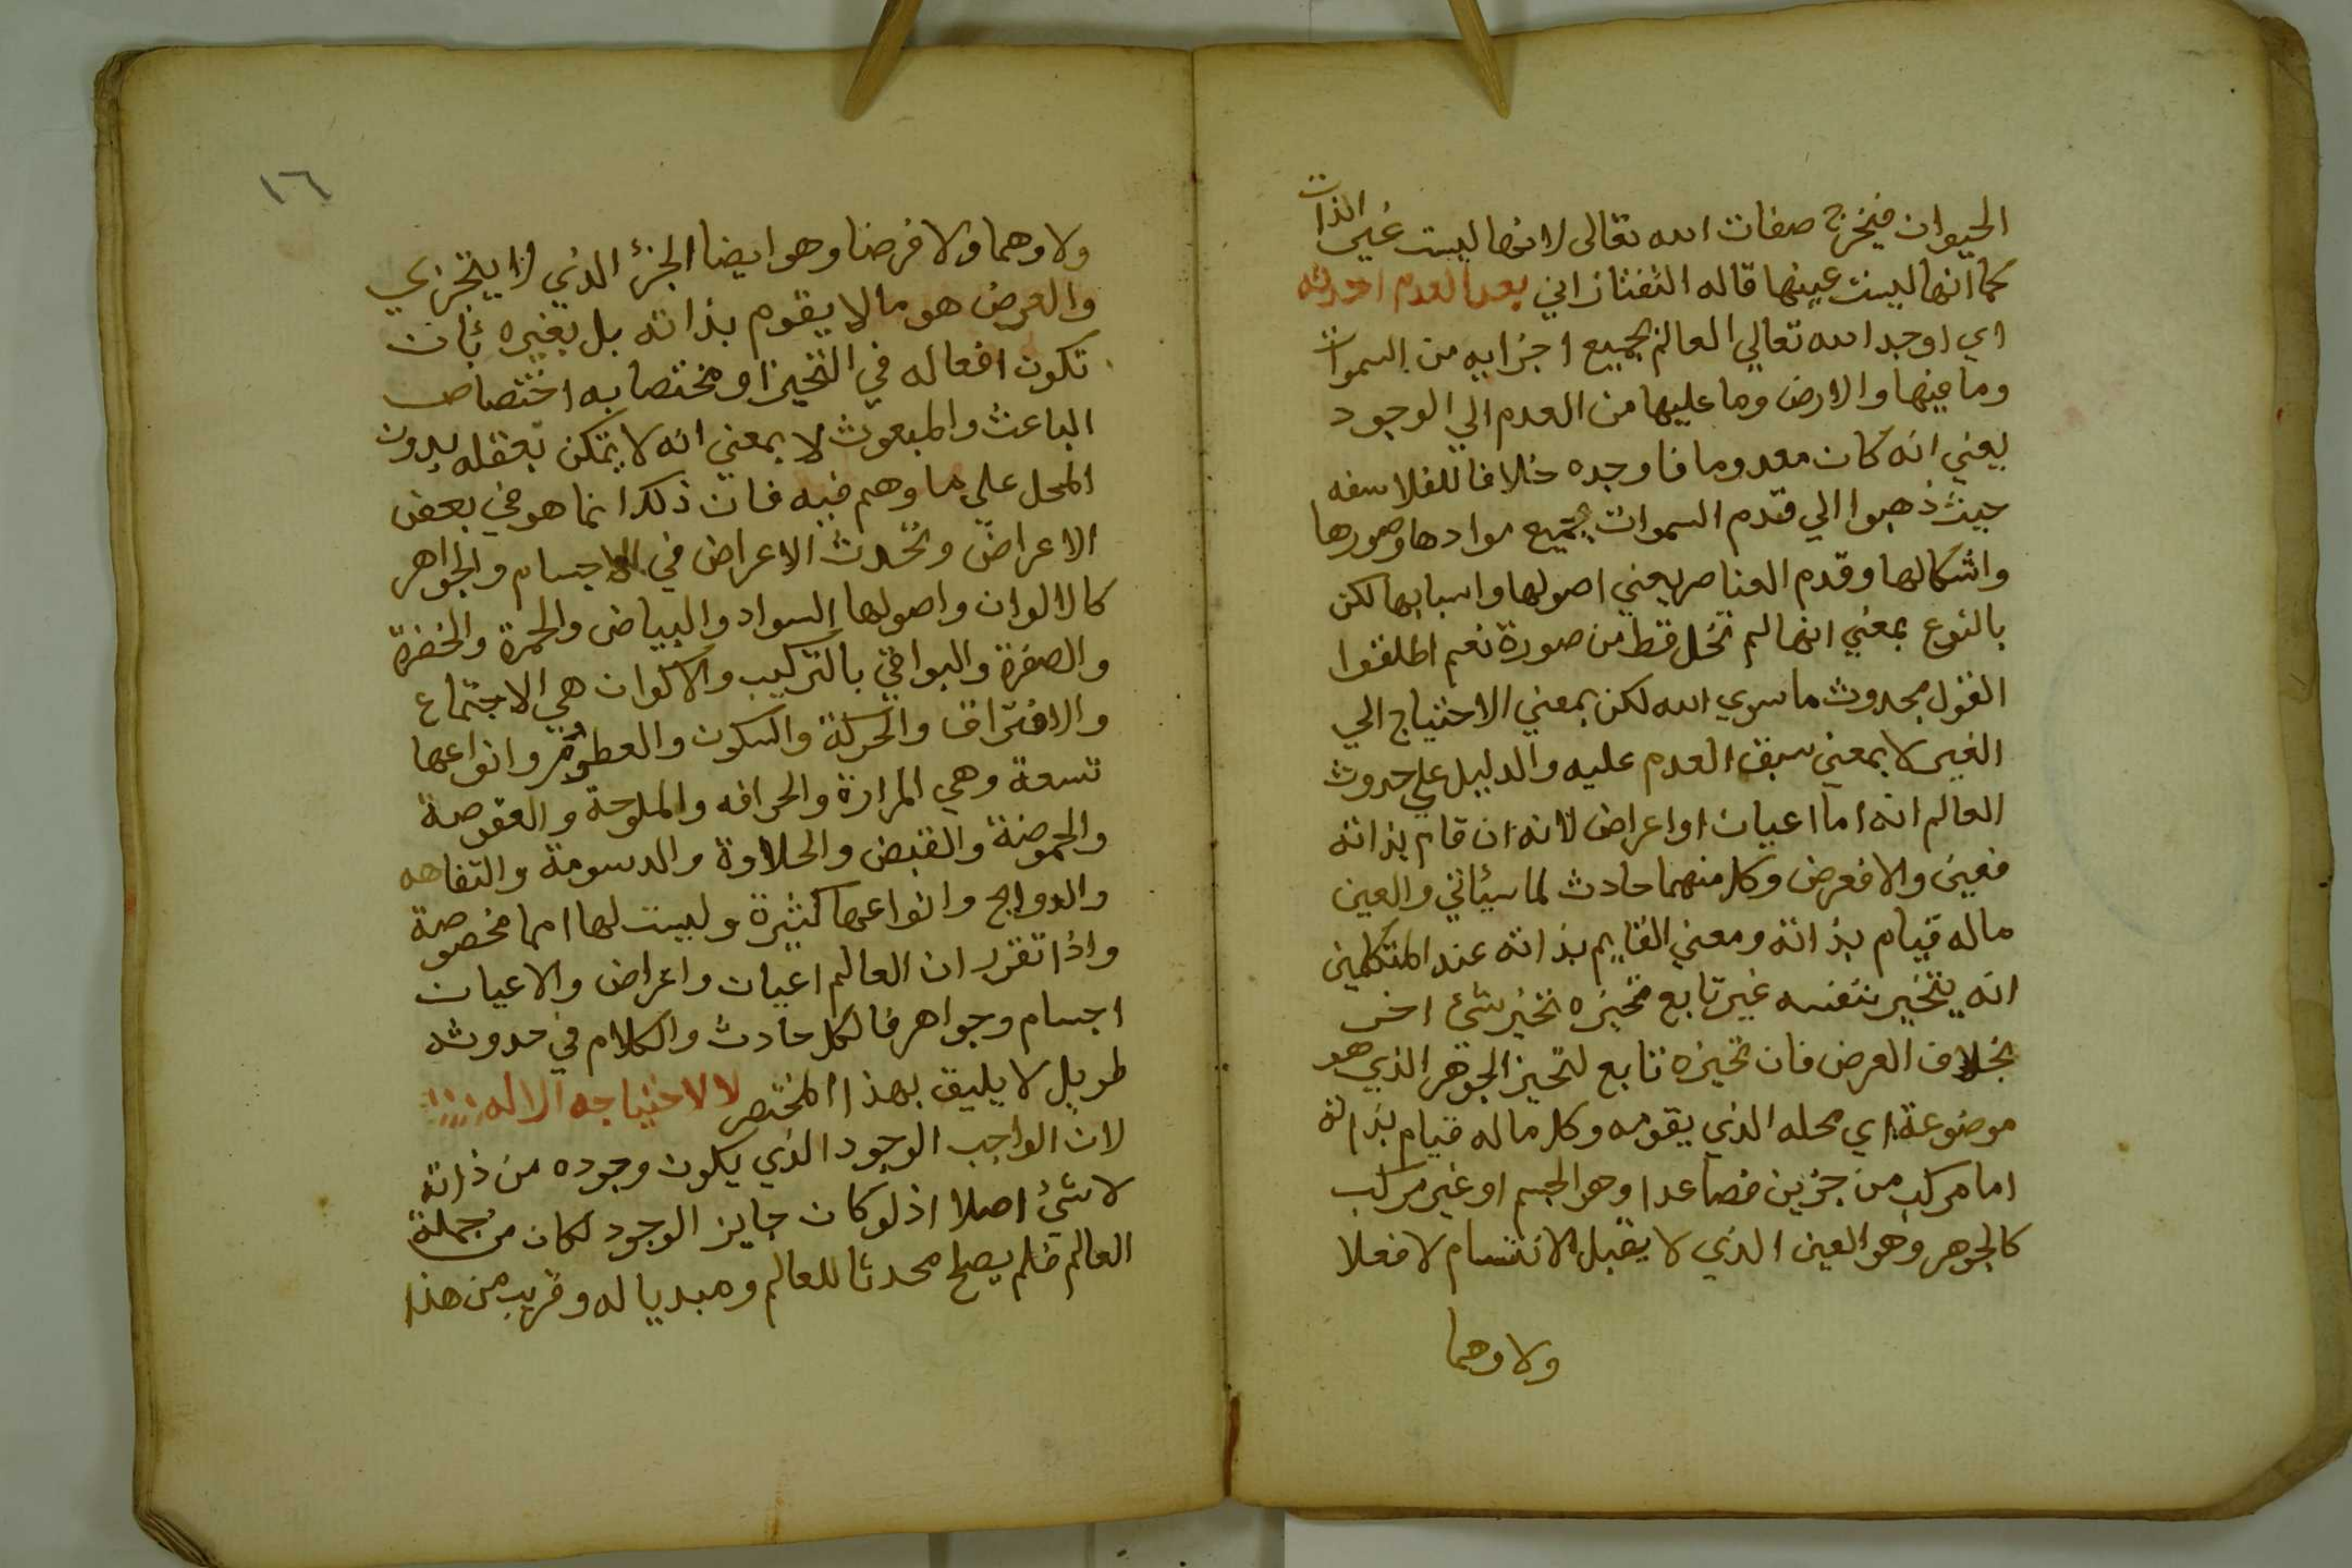 الحيوان فيخرج صفات الله تعالى لانها ليست غير الذات
كما انها ليست عينها قاله التفتازاني بعد العدم احدثه
اي اوجد الله تعالي العالم بجميع اجزايه من السموات
وما فيها والارض وما عليها من العدم الي الوجود
يعني انه كان معدوما فاوجده خلافا للفلاسفه
حيث ذهبوا الي قدم السموات بجميع موادها وصورها
واشكالها وقدم العناصر يعني اصولها واسبابها لكن
بالنوع بمعني انها لم تخل قط من صورة نعم اطلقوا
القول بحدوث ما سوي الله لكن بمعني الاحتياج الي
الغير لا بمعني سبق العدم عليه والدليل علي حدوث
العالم انه اما اعيان او اعراض لانه ان قام بذاته
فعين والا فعرض وكل منهما حادث لما سيئاتي والعين
ماله قيام بذاته ومعني القايم بذاته عند المتكلمين
انه يتحيز بنفسه غير تابع تحيزه تحيز شئ اخر
بخلاف العرض فان تحيزه تابع لتحيز الجوهر الذي هو
موضوعة اي محله الذي يقومه وكل ماله قيام بذاته
اما مركب من جزين فصاعدا وهو الجسم او غير مركب
كالجوهر وهو العين الذي لا يقبل الانقسام لا فعلا
ولا وهما
١٦
ولا وهما ولا فرضا وهو ايضا الجزئ الذي لا يتجزي
والعرض هو مالا يقوم بذاته بل بغيره بأن
تكون افعاله في التحيز او مختصا به اختصاص
الباعث والمبعوث لا بمعني انه لا يمكن تعقله بدون
المحل علي ما وهم فيه فان ذلك انما هو في بعض
الاعراض وتحدث الاعراض في الاجسام والجواهر
كالالوان واصولها السواد والبياض والحمرة والخضرة
والصفرة والبواقي بالتركيب والاكوان هي الاجتماع
والافتراق والحركة والسكون والطعوم وانواعها
تسعة وهي المرارة والحرافه والملوحة والعفوصة
والحموضة والقبض والحلاوة والدسومة والتفاهه
والروايح وانواعها كثيرة وليست لها اسما مخصوصة
واذا تقرر ان العالم اعيان واعراض والاعيان
اجسام وجواهر فالكل حادث والكلام في حدوثه
طويل لا يليق بهذا المختصر لا لاحتياجه الاله
لان الواجب الوجود الذي يكون وجوده من ذاته
لا شئ اصلا اذ لو كان جايز الوجود لكان من جملة
العالم فلم يصلح محدثا للعالم ومبديا له وقريب من هذا